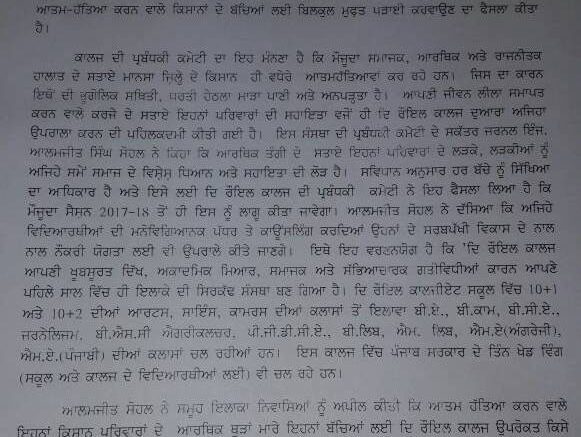 ਆਤਮ-ਹੱਤਿਆ ਕਰਨ ਵਾਲੇ ਕਿਸਾਨਾਂ ਦੇ ਬੱਚਿਆਂ ਲਈ ਬਿਲਕੁਲ ਮੁਫਤ ਪੜਾਈ ਕਰਵਾਉਣ ਦਾ ਫੈਸਲਾ ਕੀਤਾ
ਹੈ।
ਕਾਲਜ ਦੀ ਪ੍ਰਬੰਧਕੀ ਕਮੇਟੀ ਦਾ ਇਹ ਮੰਨਣਾ ਹੈ ਕਿ ਮੌਜੂਦਾ ਸਮਾਜਕ, ਆਰਥਿਕ ਅਤੇ ਰਾਜਨੀਤਕ
ਹਾਲਾਤ ਦੇ ਸਤਾਏ ਮਾਨਸਾ ਜਿਲ੍ਹੇ ਦੇ ਕਿਸਾਨ ਹੀ ਵਧੇਰੇ ਆਤਮਹੱਤਿਆਵਾਂ ਕਰ ਰਹੇ ਹਨ। ਜਿਸ ਦਾ ਕਾਰਨ
ਇਥੋਂ ਦੀ ਭੂਗੋਲਿਕ ਸਥਿਤੀ, ਧਰਤੀ ਹੇਠਲਾ ਮਾੜਾ ਪਾਣੀ ਅਤੇ ਅਨਪੜ੍ਹਤਾ ਹੈ। ਆਪਣੀ ਜੀਵਨ ਲੀਲਾ ਸਮਾਪਤ
ਕਰਨ ਵਾਲੇ ਕਰਜੇ ਦੇ ਸਤਾਏ ਇਹਨਾਂ ਪਰਿਵਾਰਾਂ ਦੀ ਸਹਾਇਤਾ ਵਜੋਂ ਹੀ ਦਿ ਰੋਇਲ ਕਾਲਜ ਦੁਆਰਾ ਅਜਿਹਾ
ਉਪਰਾਲਾ ਕਰਨ ਦੀ ਪਹਿਲਕਦਮੀ ਕੀਤੀ ਗਈ ਹੈ। ਇਸ ਸੰਸਥਾ ਦੀ ਪ੍ਰਬੰਧਕੀ ਕਮੇਟੀ ਦੇ ਸਕੱਤਰ ਜਰਨਲ ਇੰਜ.
ਆਲਮਜੀਤ ਸਿੰਘ ਸੋਹਲ ਨੇ ਕਿਹਾ ਕਿ ਆਰਥਿਕ ਤੰਗੀ ਦੇ ਸਤਾਏ ਇਹਨਾਂ ਪਰਿਵਾਰਾਂ ਦੇ ਲੜਕੇ, ਲੜਕੀਆਂ ਨੂੰ
ਅਜਿਹੇ ਸਮੇਂ ਸਮਾਜ ਦੇ ਵਿਸ਼ੇਸ਼ ਧਿਆਨ ਅਤੇ ਸਹਾਇਤਾ ਦੀ ਲੋੜ ਹੈ। ਸਵਿਧਾਨ ਅਨੁਸਾਰ ਹਰ ਬੱਚੇ ਨੂੰ ਸਿੱਖਿਆ
ਦਾ ਅਧਿਕਾਰ ਹੈ ਅਤੇ ਇਸੇ ਲਈ ਦਿ ਰੋਇਲ ਕਾਲਜ ਦੀ ਪ੍ਰਬੰਧਕੀ ਕਮੇਟੀ ਨੇ ਇਹ ਫੈਸਲਾ ਲਿਆ ਹੈ ਕਿ
ਮੌਜੂਦਾ ਸੈਸ਼ਨ 2017-18 ਤੋਂ ਹੀ ਇਸ ਨੂੰ ਲਾਗੂ ਕੀਤਾ ਜਾਵੇਗਾ। ਆਲਮਜੀਤ ਸੋਹਲ ਨੇ ਦੱਸਿਆ ਕਿ ਅਜਿਹੇ
ਵਿਦਿਆਰਥੀਆਂ ਦੀ ਮਨੋਵਿਗਿਆਨਕ ਪੱਧਰ ਤੇ ਕਾਊਂਸਲਿੰਗ ਕਰਦਿਆਂ ਉਹਨਾਂ ਦੇ ਸਰਬਪੱਖੀ ਵਿਕਾਸ ਦੇ ਨਾਲ
ਨਾਲ ਨੌਕਰੀ ਯੋਗਤਾ ਲਈ ਵੀ ਉਪਰਾਲੇ ਕੀਤੇ ਜਾਣਗੇ। ਇਥੇ ਇਹ ਵਰਣਨਯੋਗ ਹੈ ਕਿ 'ਦਿ ਰੋਇਲ ਕਾਲਜ
ਆਪਣੀ ਖੂਬਸੂਰਤ ਦਿੱਖ, ਅਕਾਦਮਿਕ ਮਿਆਰ, ਸਮਾਜਕ ਅਤੇ ਸੱਭਿਆਚਾਰਕ ਗਤੀਵਿਧੀਆਂ ਕਾਰਨ ਆਪਣੇ
ਪਹਿਲੇ ਸਾਲ ਵਿੱਚ ਹੀ ਇਲਾਕੇ ਦੀ ਸਿਰਕੱਢ ਸੰਸਥਾ ਬਣ ਗਿਆ ਹੈ। ਦਿ ਰੋਇਲ ਕਾਲਜੀਏਟ ਸਕੂਲ ਵਿੱਚ 10+1
ਅਤੇ 10+2 ਦੀਆਂ ਆਰਟਸ, ਸਾਇੰਸ, ਕਾਮਰਸ ਦੀਆਂ ਕਲਾਸਾਂ ਤੋਂ ਇਲਾਵਾ ਬੀ.ਏ., ਬੀ.ਕਾਮ, ਬੀ.ਸੀ.ਏ.,
ਜਰਨੇਲਿਜਮ, ਬੀ.ਐਸ.ਸੀ ਐਗਰੀਕਲਚਰ, ਪੀ.ਜੀ.ਡੀ.ਸੀ.ਏ., ਬੀ.ਲਿਬ, ਐਮ. ਲਿਬ, ਐਮ.ਏ(ਅੰਗਰੇਜੀ),
ਐਮ.ਏ.(ਪੰਜਾਬੀ) ਦੀਆਂ ਕਲਾਸਾਂ ਚਲ ਰਹੀਆਂ ਹਨ। ਇਸ ਕਾਲਜ ਵਿੱਚ ਪੰਜਾਬ ਸਰਕਾਰ ਦੇ ਤਿੰਨ ਖੇਡ ਵਿੰਗ
(ਸਕੂਲ ਅਤੇ ਕਾਲਜ ਦੇ ਵਿਦਿਆਰਥੀਆਂ ਲਈ) ਵੀ ਚਲ ਰਹੇ ਹਨ।
ਆਲਮਜੀਤ ਸੋਹਲ ਨੇ ਸਮੂਹ ਇਲਾਕਾ ਨਿਵਾਸਿਆਂ ਨੂੰ ਅਪੀਲ ਕੀਤੀ ਕਿ ਆਤਮ ਹੱਤਿਆ ਕਰਨ ਵਾਲੇ
ਇਹਨਾਂ ਕਿਸਾਨ ਪਰਿਵਾਰਾਂ ਦੇ ਆਰਥਿਕ ਥੁੜਾਂ ਮਾਰੇ ਇਹਨਾਂ ਬੱਚਿਆਂ ਲਈ ਦਿ ਰੋਇਲ ਕਾਲਜ ਉਪਰੋਕਤ ਕਿਸੇ